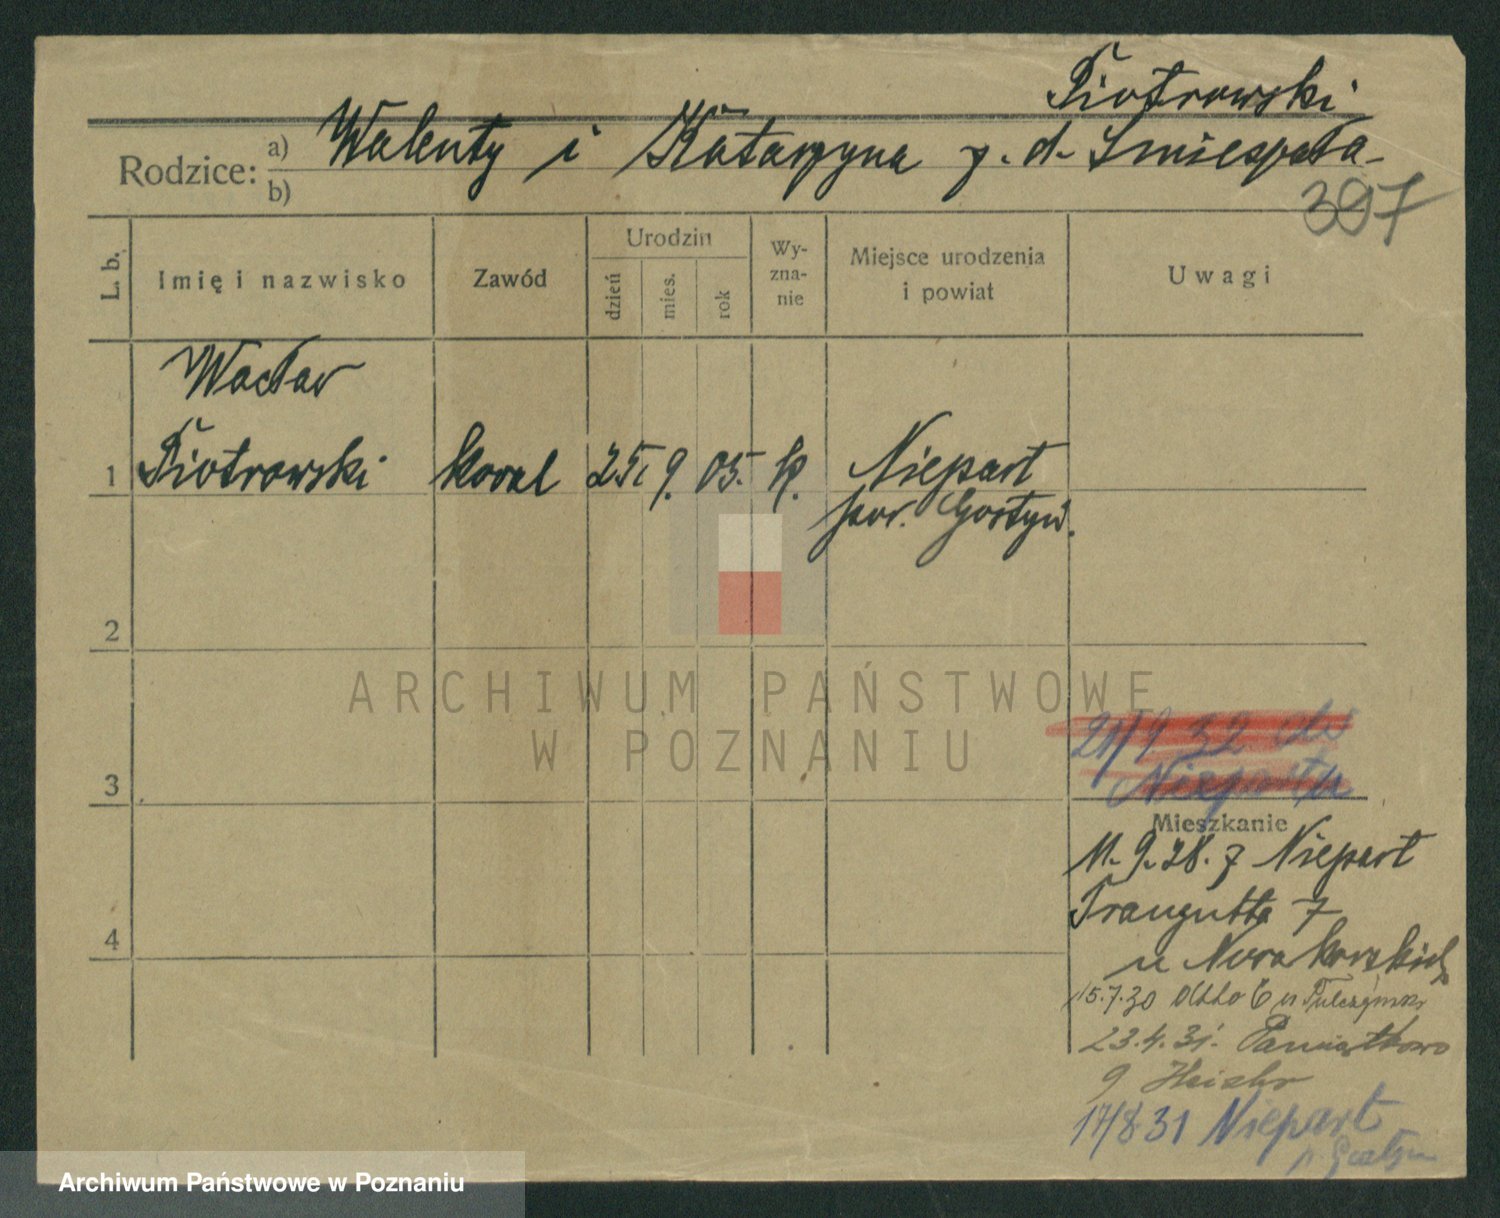 Piotrowski
Rodzice: a) Walenty i Katarzyna z. d. Śmiespała
b)
397
L. b.
Imię i nazwisko
Zawód
Urodzin
dzień
mies.
rok
Wy-
zna-
nie
Miejsce urodzenia
i powiat
Uwagi
Wacław
1 Piotrowski kowal 25. 9. 05. k. Niepart
pow. Gostyń.
2
ARCHIWUM PAŃSTWOWE
W POZNANIU
21/9 32 do
Niepartu
3
Mieszkanie
11. 9. 28. z Niepart
Traugutta 7
u Nowakowskich
4
15.7.30 6 u
23.4.31. Pamiątkowo
9
17/8 31 Niepart
p. Gostyń
Archiwum Państwowe w Poznaniu